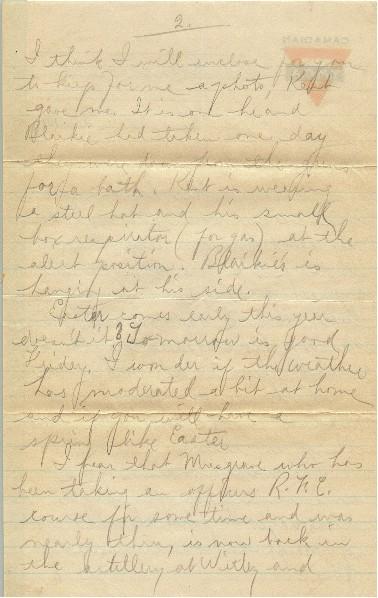 2.
CANADIAN
I think I will enclose for you
to keep for me a photo Kent
gave me. It is one he and
Blaikie had taken one day
they were from the guns
for a bath. Kent is wearing
a steel hat and his small
box respirator (for gas) at the
alert position. Blaikie's is
hanging at his side.
Easter comes early this year
doesn't it? Tomorrow is Good
Friday. I wonder if the weather
has moderated a bit at home
and if you will have a
spring like Easter
I hear that Musgrave who has
been taking an officers R.F.C.
course for some time and was
nearly thru, is now back in
the artillery at Witley and